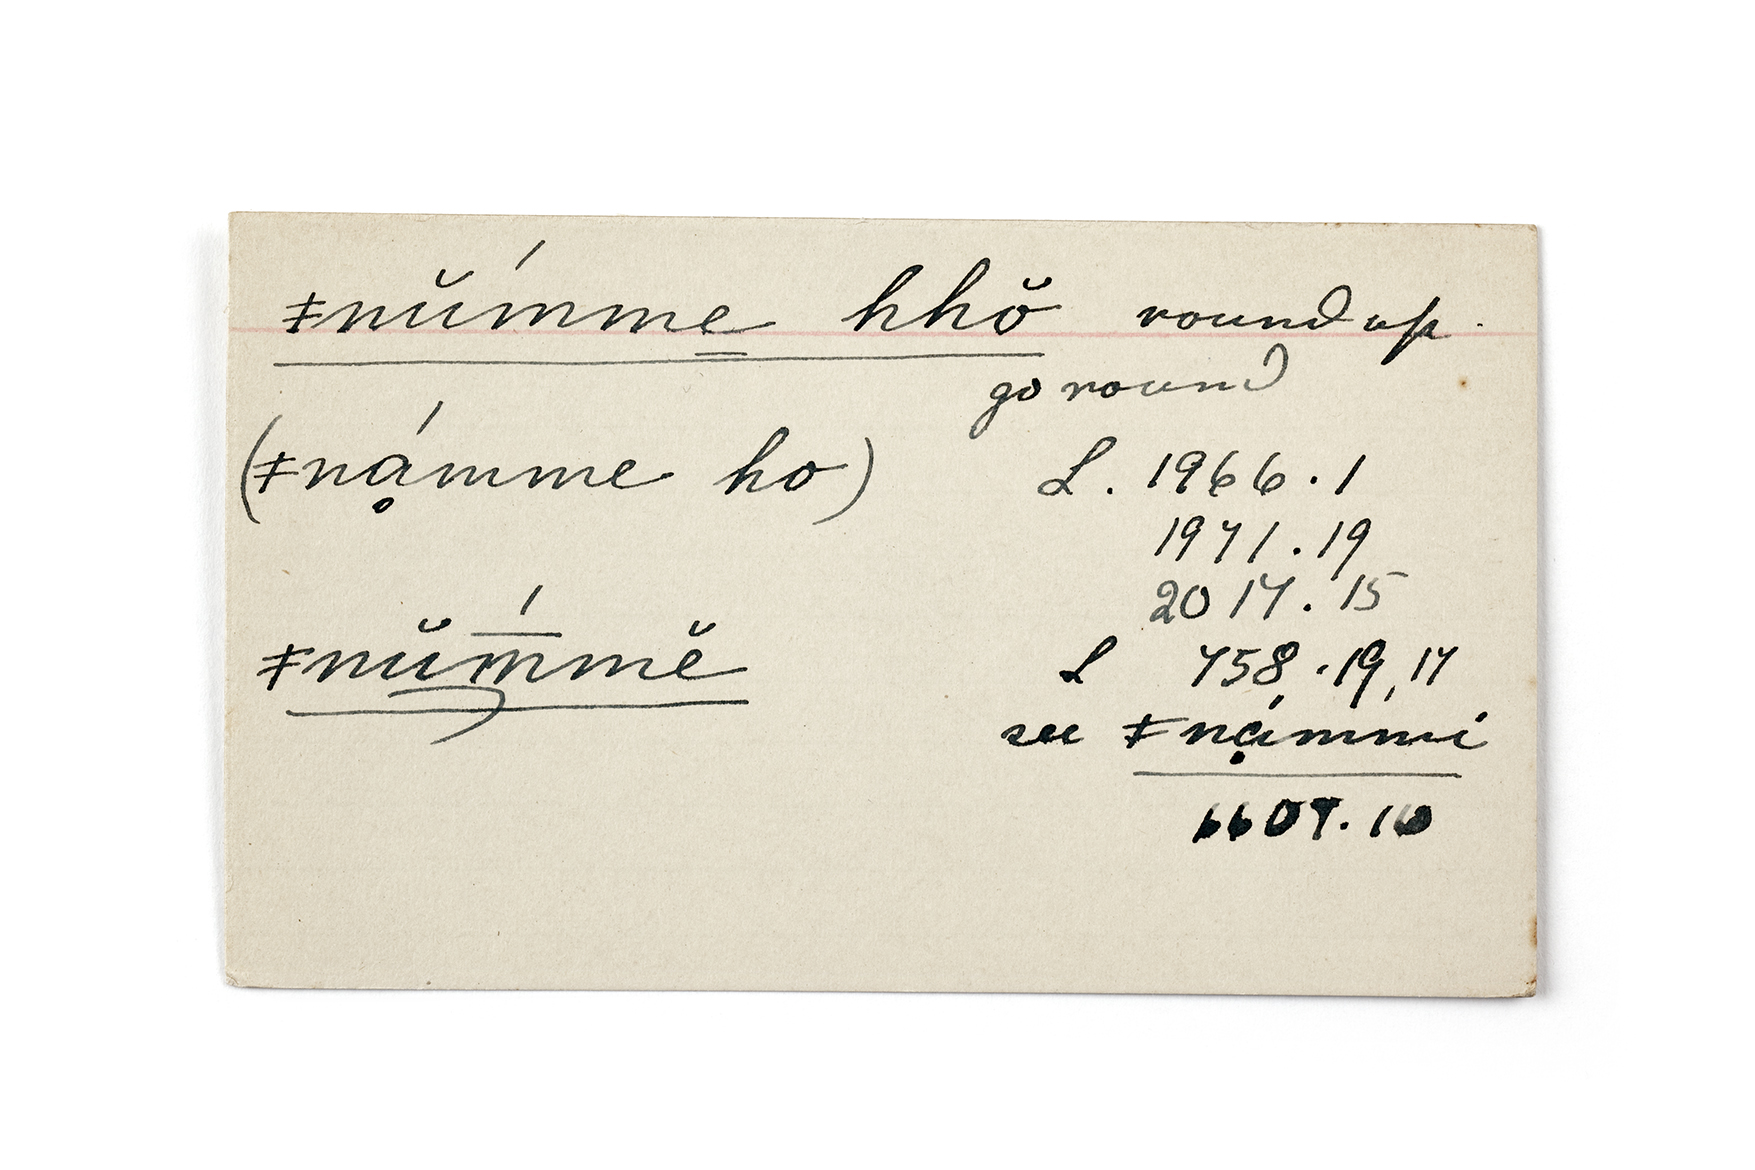 ǂnŭḿme hhŏ round up.
go round
(ǂnạ́mme ho) L. 1966.1
1971.19
2017.15
ǂnŭḿmĕ L 758.19,17
see ǂnạ́mmi
6607.10